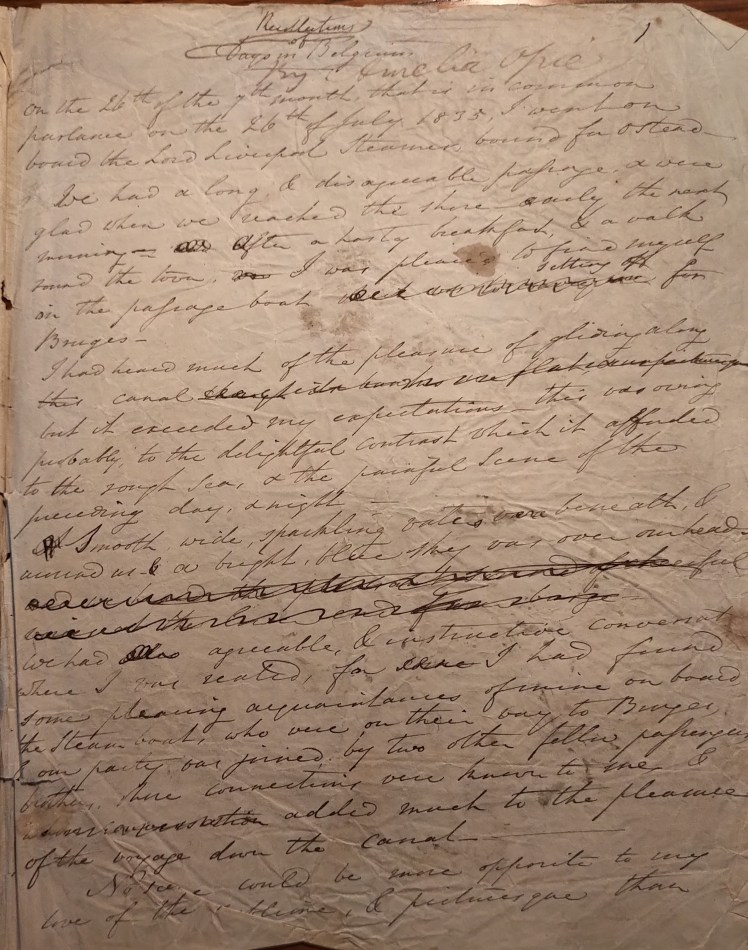 Recollections
of
Days in Belgium
by Amelia Opie
1
on the 26th of the 7th month that is in common
parlance on the 26th of July 1835, I went on
board the Lord Liverpool Steamer bound for Ostend
We had a long & disagreeable passage, & were
glad when we reached the shore early the next
morning — after a hasty breakfast, & a walk
round the town, I was pleased to find myself
in the passage boat setting off for
Bruges —
I had heard much of the pleasure of gliding along
this canal
but it exceeded my expectations — this was owing
probably, to the delightful contrast which it afforded
to the rough sea, & the painful scene of the
preceding day, & night —
Smooth, wide, sparkling water were beneath, &
around us & a bright, blue sky was over our head
we had agreeable, & instructive conversat
where I was seated, for I had found
some pleasing acquaintances of mine on board
the Steam boat, who were on their way to Bruges
& our party was joined by two other fellow passengers
brothers, whose connections were known to me &
added much to the pleasure
of the voyage down the canal —
No scene could be more opposite to my
love of the sublime, & picturesque than